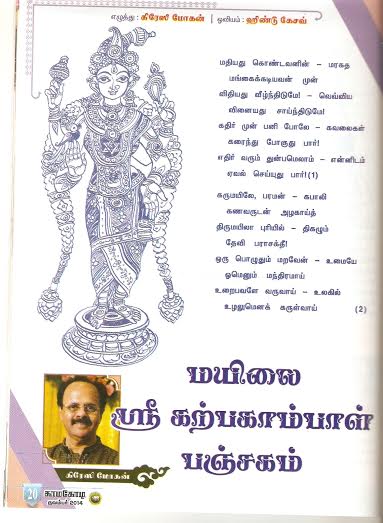 எழுத்து : கிரேஸி மோகன் | ஓவியம் : ஹிண்டு கேசவ்
மதியது கொண்டவனின் – மரகத
மங்கைக்கடியவன் முன்
விதியது வீழ்ந்திடுமே! – வெவ்விய
வினையது சாய்ந்திடுமே!
கதிர் முன் பனி போலே – கவலைகள்
கரைந்து போகுது பார்!
எதிர் வரும் துன்பமெலாம் – என்னிடம்
ஏவல் செய்யுது பார்!(1)
கருமயிலே, பரமன் – கபாலி
கணவருடன் அழகாய்த்
திருமயிலா புரியில் – திகழும்
தேவி பராசக்தீ!
ஒரு பொழுதும் மறவேன் – உமையே
ஓமெனும் மந்திரமாய்
உறைபவளே வருவாய் – உலகில்
உழலுமெனக் கருள்வாய் (2)
மயிலை
ஸ்ரீ கற்பகாம்பாள்
பஞ்சகம்
கிரேஸி மோகன்
20 காமகோடி
நவம்பர் 2014